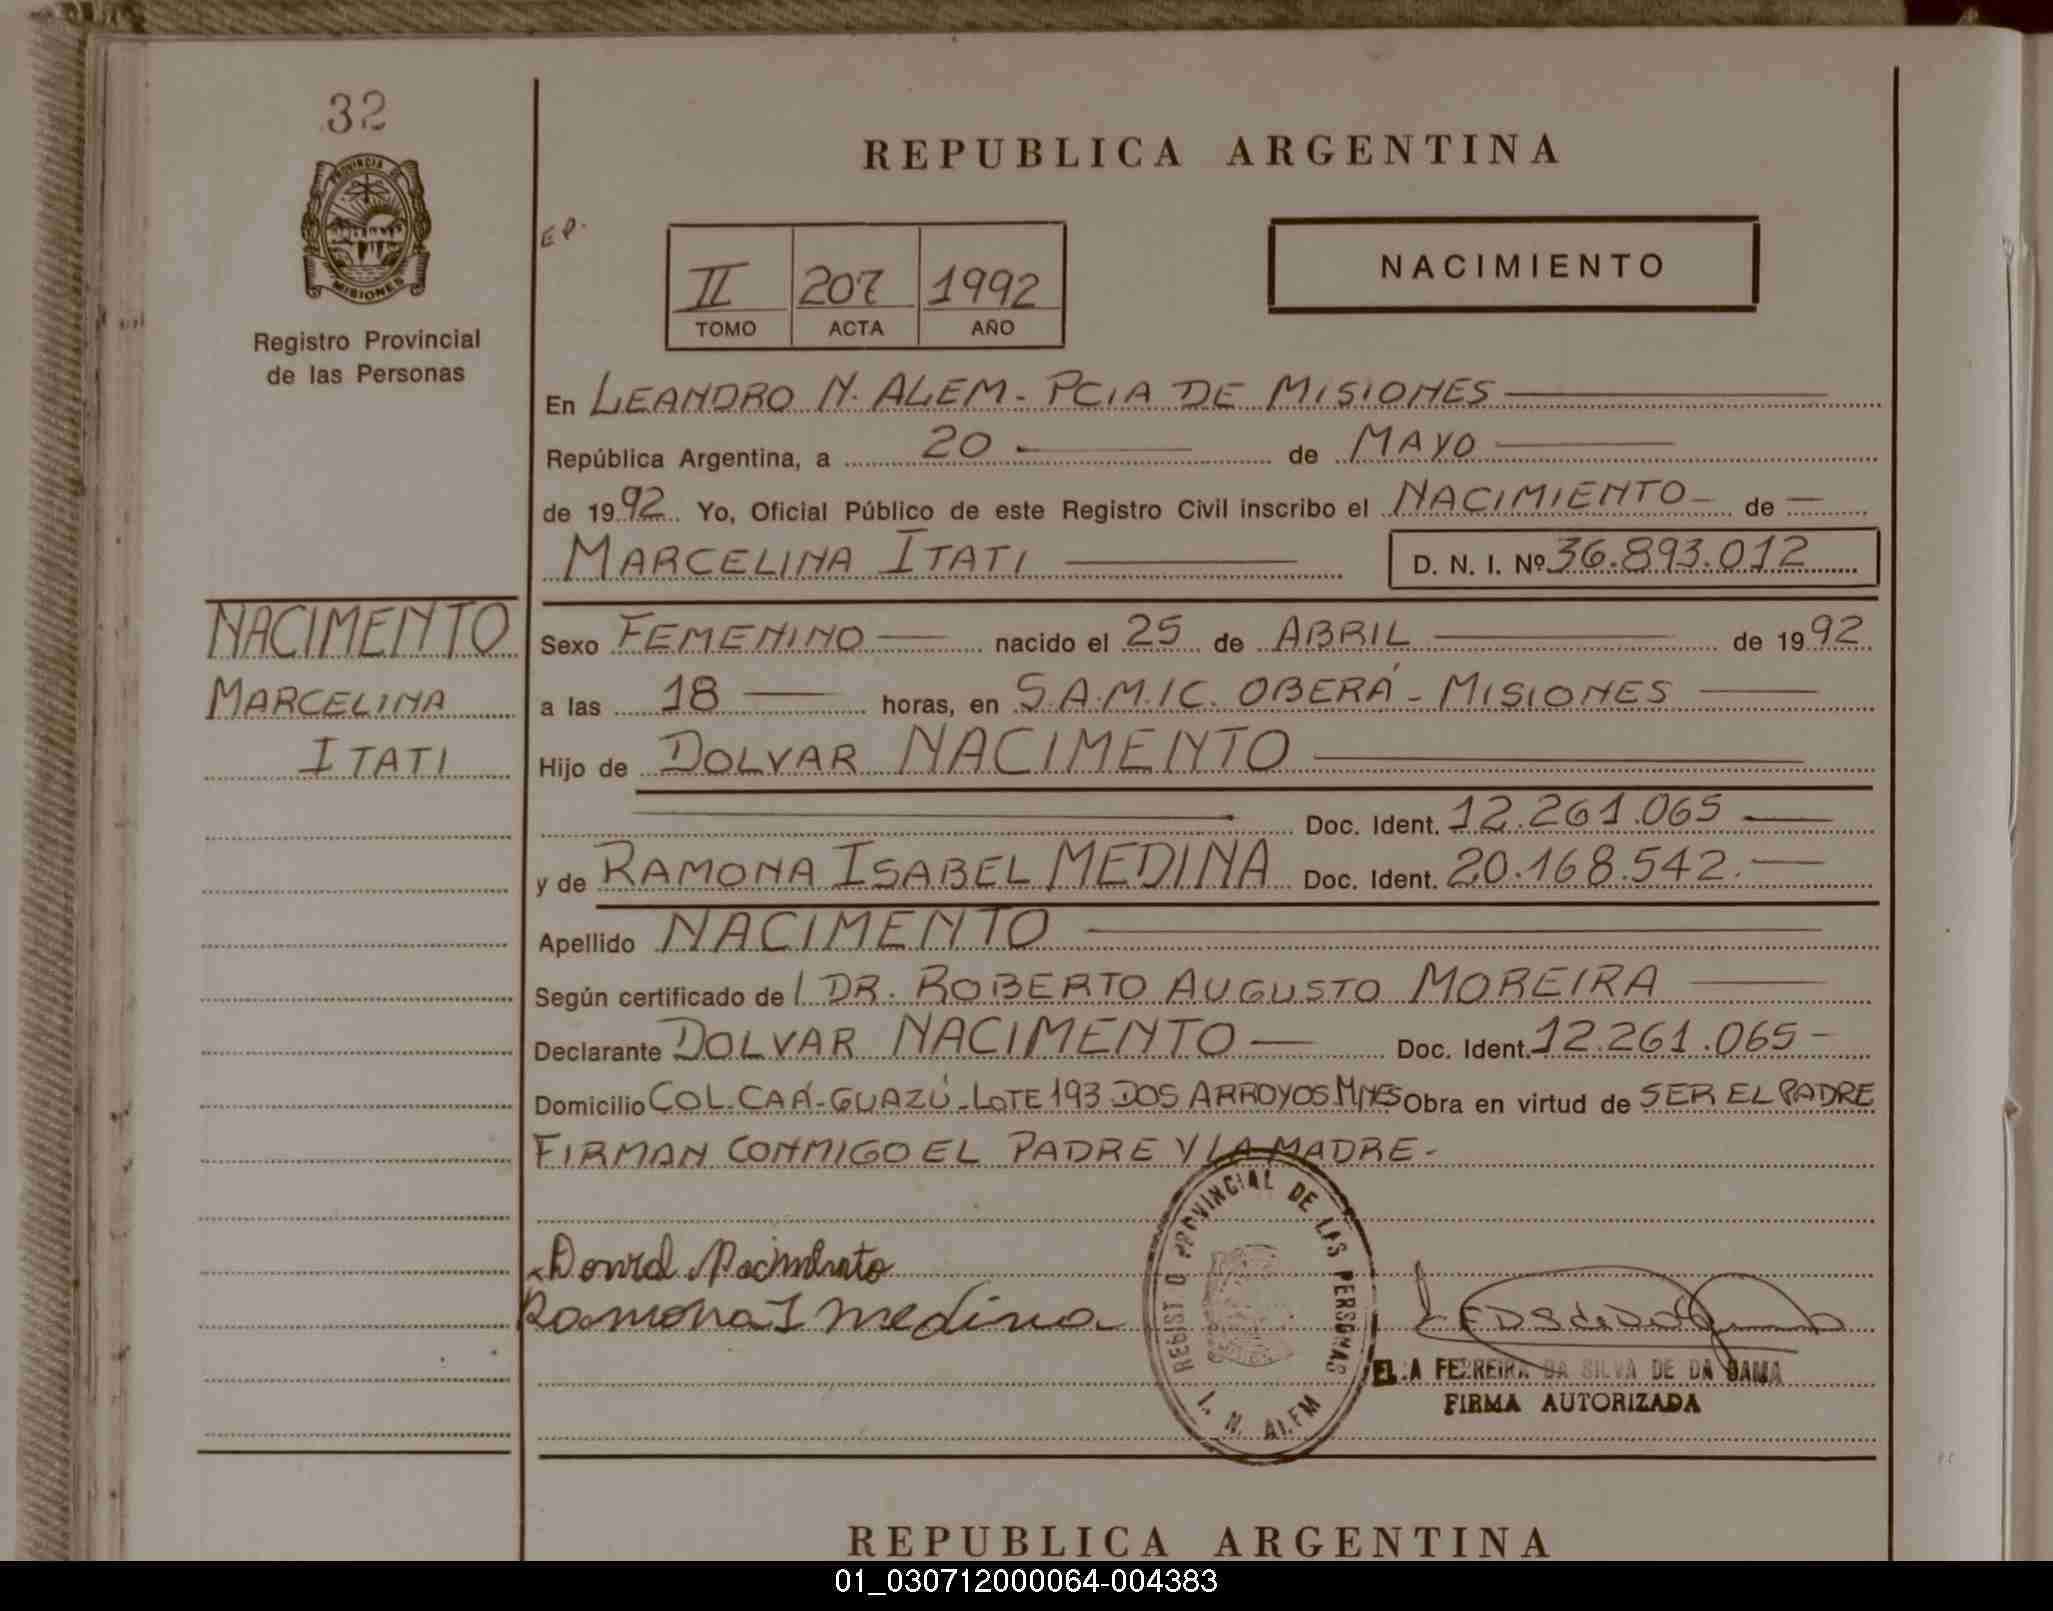 32
PROVINCIA DE
MISIONES
Registro Provincial
de las Personas
REPUBLICA ARGENTINA
E P.
II 207 1992
TOMO ACTA AÑO
NACIMIENTO
En LEANDRO N. ALEM - PCIA DE MISIONES
República Argentina, a 20 de MAYO
de 1992 Yo, Oficial Público de este Registro Civil inscribo el NACIMIENTO de
MARCELINA ITATI D. N. I. Nº 36.893.012
NACIMENTO
MARCELINA
ITATI
Sexo FEMENINO nacido el 25 de ABRIL de 1992
a las 18 horas, en S.A.M.IC. OBERÁ - MISIONES
Hijo de DOLVAR NACIMENTO
Doc. Ident. 12.261.065
y de RAMONA ISABEL MEDINA Doc. Ident. 20.168.542.
Apellido NACIMENTO
Según certificado de l DR. ROBERTO AUGUSTO MOREIRA
Declarante DOLVAR NACIMENTO Doc. Ident. 12.261.065
Domicilio COL. CAÁ-GUAZÚ - LOTE 193 DOS ARROYOS MNES Obra en virtud de SER EL PADRE
FIRMAN CONMIGO EL PADRE Y LA MADRE.
Ramona I medina
REGIST O PROVINCIAL DE LAS PERSONAS
L. N. ALEM
FERREIRA DA SILVA DE DA GAMA
FIRMA AUTORIZADA
REPUBLICA ARGENTINA
01_030712000064-004383